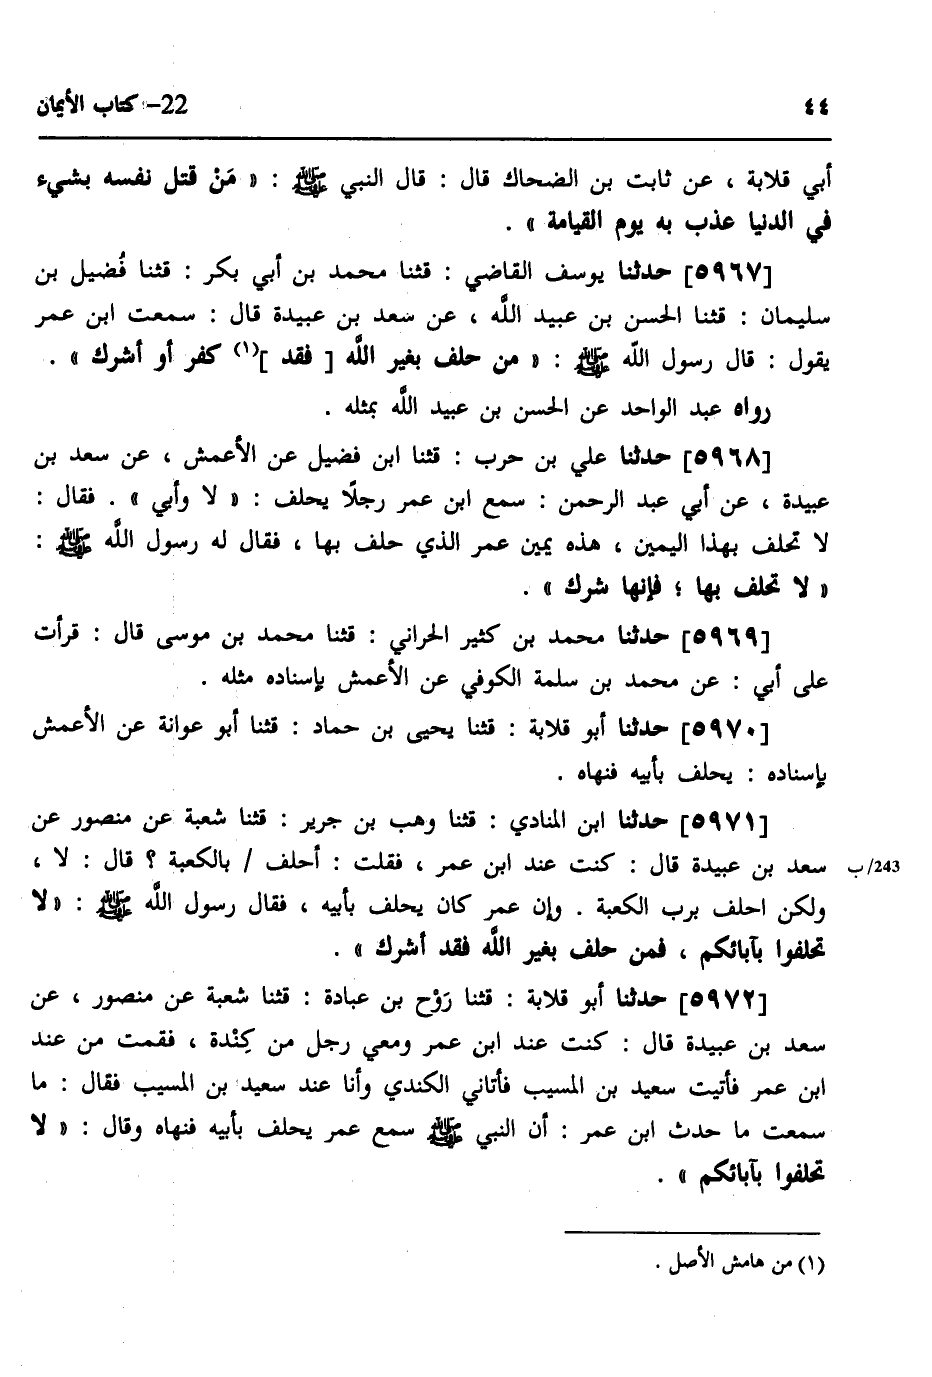 ٤٤ 22- كتاب الأيمان
أبي قلابة ، عن ثابت بن الضحاك قال : قال النبي ﷺ : « مَنْ قتل نفسه بشيء
في الدنيا عذب به يوم القيامة » .
[٥٩٦٧] حدثنا يوسف القاضي : قثنا محمد بن أبي بكر : قثنا فُضيل بن
سليمان : قثنا الحسن بن عبيد اللَّه ، عن سعد بن عبيدة قال : سمعت ابن عمر
يقول : قال رسول اللَّه ﷺ : « من حلف بغير اللَّه [ فقد ](١) كفر أو أشرك » .
رواه عبد الواحد عن الحسن بن عبيد اللَّه بمثله .
[٥٩٦٨] حدثنا علي بن حرب : قثنا ابن فضيل عن الأعمش ، عن سعد بن
عبيدة ، عن أبي عبد الرحمن : سمع ابن عمر رجلًا يحلف : « لا وأبي » . فقال :
لا تحلف بهذا اليمين ، هذه يمين عمر الذي حلف بها ، فقال له رسول اللَّه ﷺ :
« لا تحلف بها ؛ فإنها شرك » .
[٥٩٦٩] حدثنا محمد بن كثير الحراني : قثنا محمد بن موسى قال : قرأت
على أبي : عن محمد بن سلمة الكوفي عن الأعمش بإسناده مثله .
[٥٩٧٠] حدثنا أبو قلابة : قثنا يحيى بن حماد : قثنا أبو عوانة عن الأعمش
بإسناده : يحلف بأبيه فنهاه .
[٥٩٧١] حدثنا ابن المنادي : قثنا وهب بن جرير : قثنا شعبة عن منصور عن
سعد بن عبيدة قال : كنت عند ابن عمر ، فقلت : أحلف / بالكعبة ؟ قال : لا ، 243/ب
ولكن احلف برب الكعبة . وإن عمر كان يحلف بأبيه ، فقال رسول اللَّه ﷺ : « لا
تحلفوا بآبائكم ، فمن حلف بغير اللَّه فقد أشرك » .
[٥٩٧٢] حدثنا أبو قلابة : قثنا رَوْح بن عبادة : قثنا شعبة عن منصور ، عن
سعد بن عبيدة قال : كنت عند ابن عمر ومعي رجل من كِنْدة ، فقمت من عند
ابن عمر فأتيت سعيد بن المسيب فأتاني الكندي وأنا عند سعيد بن المسيب فقال : ما
سمعت ما حدث ابن عمر : أن النبي ﷺ سمع عمر يحلف بأبيه فنهاه وقال : « لا
تحلفوا بآبائكم » .
(١) من هامش الأصل .